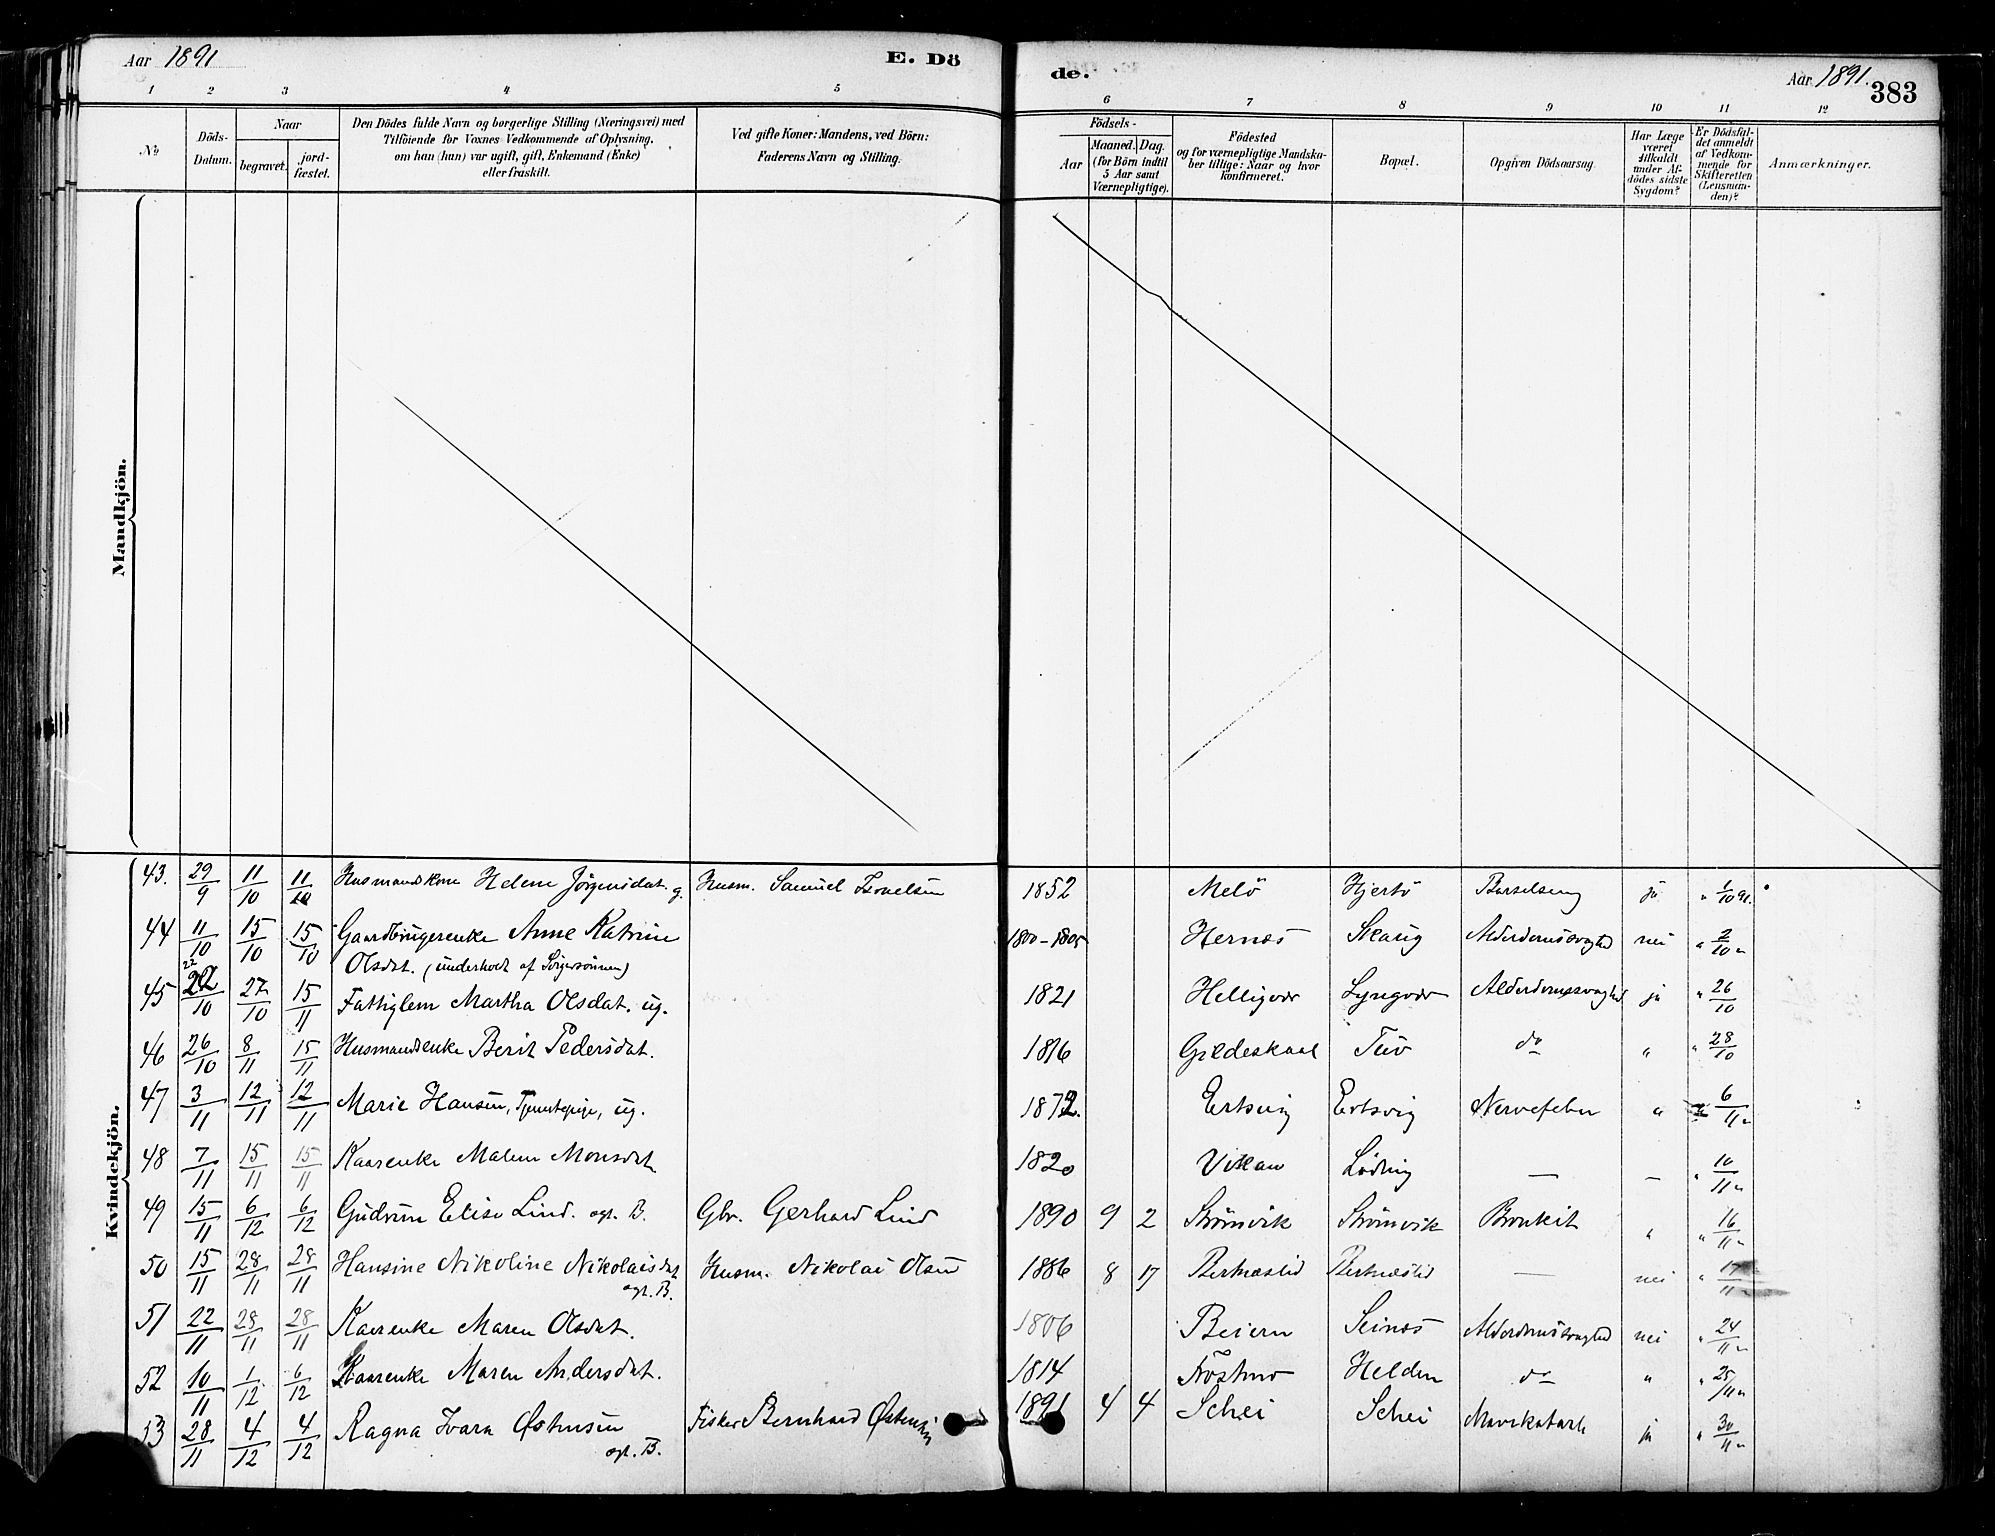 Aar 1891 E. Dö de. Aar 1891. 383
1 2 3 4 5 6 7 8 9 10 11 12
No
Döds-Datum.
Naar
begravet. jord-fæstet.
Den Dödes fulde Navn og borgerlige Stilling (Næringsvei) med
Tilföiende for Voxnes Vedkommende af Oplysning,
om han (hun) var ugift, gift, Enkemand (Enke)
eller fraskilt.
Ved gifte Koner: Mandens, ved Börn:
Faderens Navn og Stilling.
Födsels-
Aar
Maaned. Dag.
(for Börn indtil
5 Aar samt
Værnepligtige).
Födested
og for værnepligtige Mandska-
ber tillige: Naar og hvor
konfirmeret.
Bopæl.
Opgiven Dödsaarsag.
Har Læge
været
tilkaldt
under Af-
dödes sidste
Sygdom?
Er Dödsfal-
det anmeldt
af Vedkom-
mende for
Skifteretten
(Lensman-
den)?
Anmærkninger.
Mandkjön.
Kvindekjön.
43. 29/9 11/10 11/10 Husmandskone Helene Jörgensdat. g. Husm. Samuel 1852 Melö Hjertö Barselseng ja " 1/10 91.
44 11/10 15/10 15/10 Gaardbrugerenke Anne Katrine 1800-1805 Hernes Skaug Alderdomssvaghed nei " 2/10 "
Olsdat. (underholdt af
45 22 22/10 27/10 15/11 Fattiglem Martha Olsdat. ug. 1821 Helligvær Lyngvær Alderdomssvaghed ja " 26/10
46 26/10 8/11 15/11 Husmandsenke Berit Pedersdat. 1816 Gildeskaal Tuv do " " 28/10
47 3/11 12/11 12/11 Marie Hansen, Tjenestepige, ug. 1872. Ertsvig Ertsvig Nervefeber " 6/11 "
48 7/11 15/11 15/11 Kaarenke Malene Monsdat. 1820 Vikan Löding — — " 10/11 "
49 15/11 6/12 6/12 Gudrun Elise Lind. ægt. B. Gbr. Gerhard Lind 1890 9 2 Strömvik Strömvik Bronkit " " 16/11 "
50 15/11 28/11 28/11 Hansine Nikoline Nikolaisdat Husm. Nikolai Olsen 1886 8 17 Bertnæslid Bertnæslid — nei " 17/11 "
ægt. B.
51 22/11 28/11 28/11 Kaarenke Maren Olsdat. 1806 Beiern Seines Alderdomssvaghed nei " 24/11 "
52 10/11 1/12 6/12 Kaarenke Maren Andersdat. 1814 Fostmo Helden do " " 25/11 "
53 28/11 4/12 4/12 Ragna Ivara Østensen Fisker Bernhard Østensen 1891 4 4 Schei Schei Mavekatarh ja " 30/11 "
ægt. B.